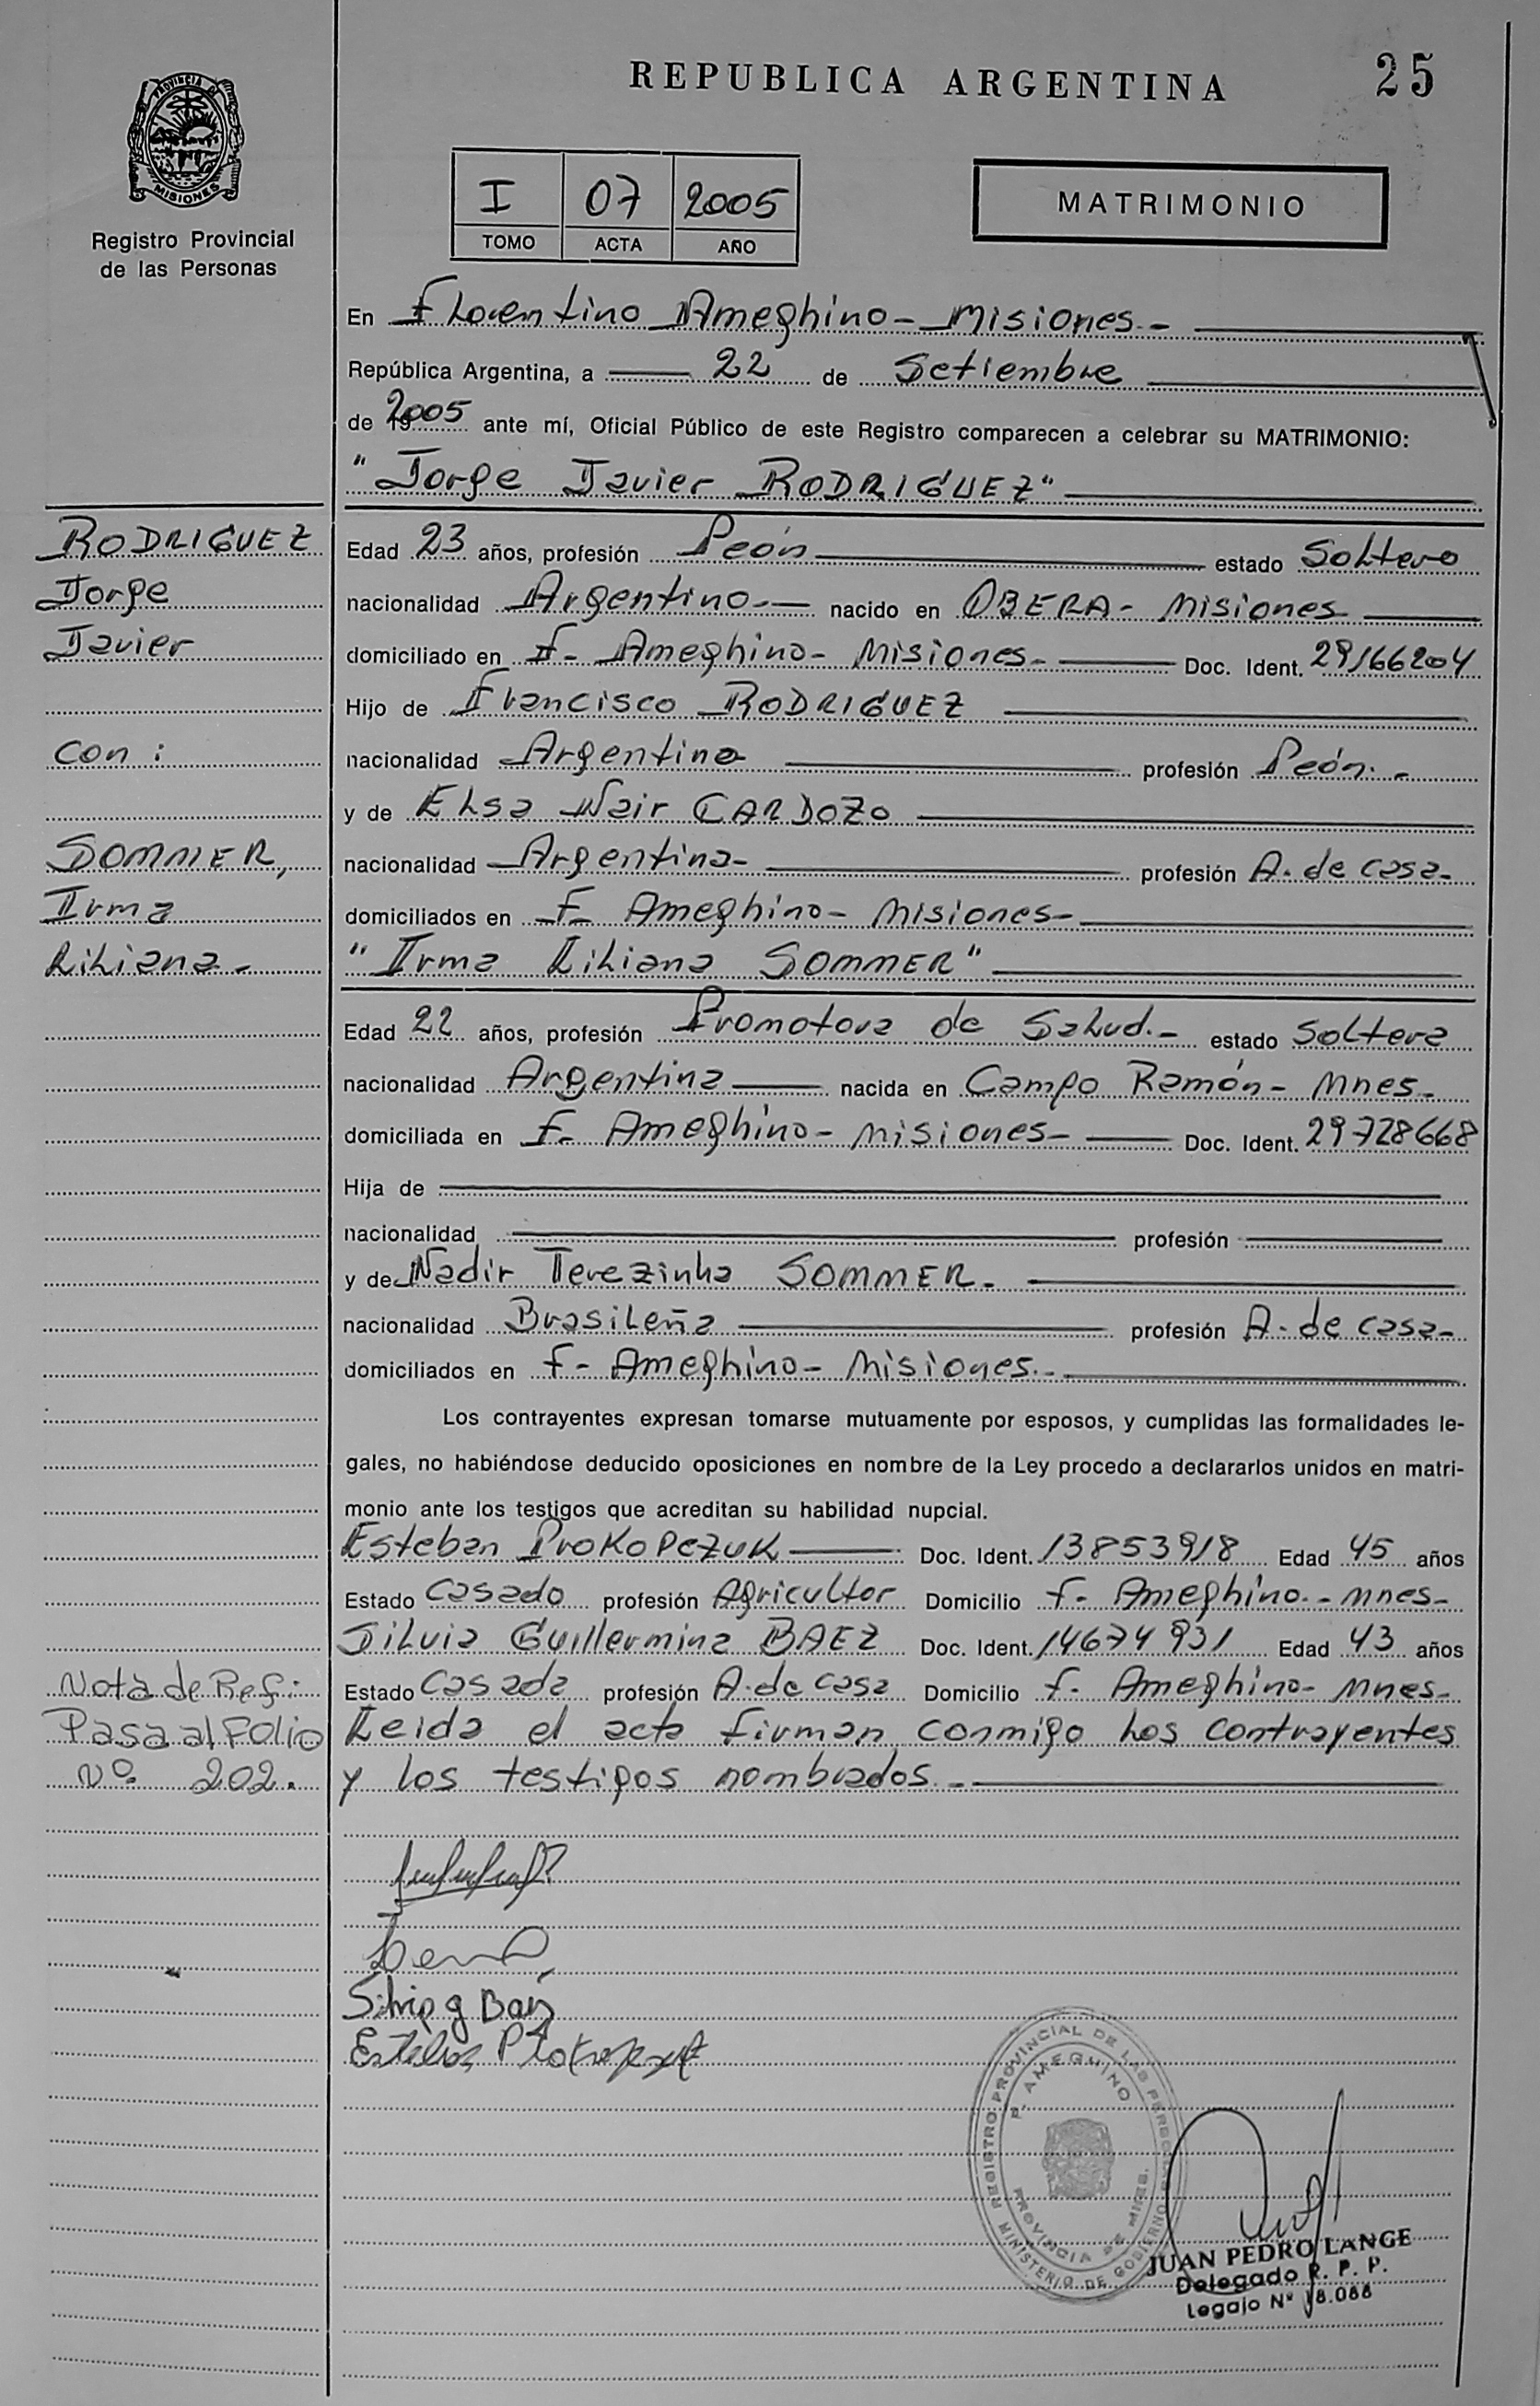 REPUBLICA ARGENTINA
25
PROVINCIA DE
MISIONES
Registro Provincial
de las Personas
I 07 2005
TOMO ACTA AÑO
MATRIMONIO
En Florentino Ameghino - Misiones.-
República Argentina, a 22 de Setiembre
de 2005 ante mí, Oficial Público de este Registro comparecen a celebrar su MATRIMONIO:
"Jorge Javier RODRIGUEZ"
RODRIGUEZ
Jorge
Javier
con :
SOMMER,
Irma
Liliana.-
Edad 23 años, profesión Peón estado Soltero
nacionalidad Argentino.- nacido en OBERA - Misiones
domiciliado en F- Ameghino - Misiones- Doc. Ident. 29166204
Hijo de Francisco RODRIGUEZ
nacionalidad Argentino profesión Peón.-
y de Elsa Nair CARDOZO
nacionalidad Argentina- profesión A. de casa-
domiciliados en F- Ameghino - Misiones-
"Irma Liliana SOMMER"
Edad 22 años, profesión Promotora de Salud.- estado Soltera
nacionalidad Argentina nacida en Campo Ramón - Mnes-
domiciliada en F- Ameghino - Misiones- Doc. Ident. 29728668
Hija de
nacionalidad profesión
y de Nadir Terezinha SOMMER.-
nacionalidad Brasileña profesión A- de casa-
domiciliados en F- Ameghino - Misiones.-
Los contrayentes expresan tomarse mutuamente por esposos, y cumplidas las formalidades le-
gales, no habiéndose deducido oposiciones en nombre de la Ley procedo a declararlos unidos en matri-
monio ante los testigos que acreditan su habilidad nupcial.
Esteban PROKOPCZUK Doc. Ident. 13853918 Edad 45 años
Estado Casado profesión Agricultor Domicilio F- Ameghino.- Mnes-
Silvia Guillermina BAEZ Doc. Ident. 14674931 Edad 43 años
Estado Casada profesión A. de casa Domicilio F- Ameghino - Mnes-
Leida el acta firman conmigo los contrayentes
y los testigos nombrados.-
Nota de Ref:
Pasa al Folio
Nº 202.
Silvia g Baez
REGISTRO PROVINCIAL DE LAS PERSONAS
F. AMEGHINO
PROVINCIA DE MNES.
MINISTERIO DE GOBIERNO
JUAN PEDRO LANGE
Delegado R. P. P.
Legajo Nº 18.088